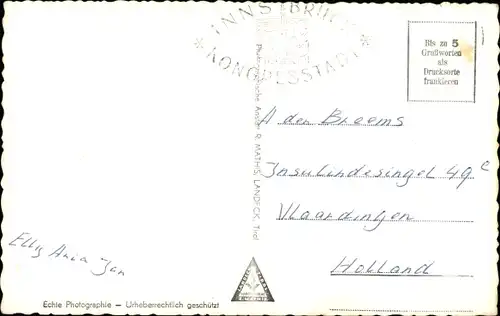 INNSBRUCK
* KONGRESSTADT *
Bis zu 5
Grußworten
als
Drucksorte
frankieren
A den Breems
Insulindesingel 49 c
Vlaardingen
Holland
Elly Ania Jan
R. MATHIS, LANDECK, Tirol
Echte Photographie — Urheberrechtlich geschützt